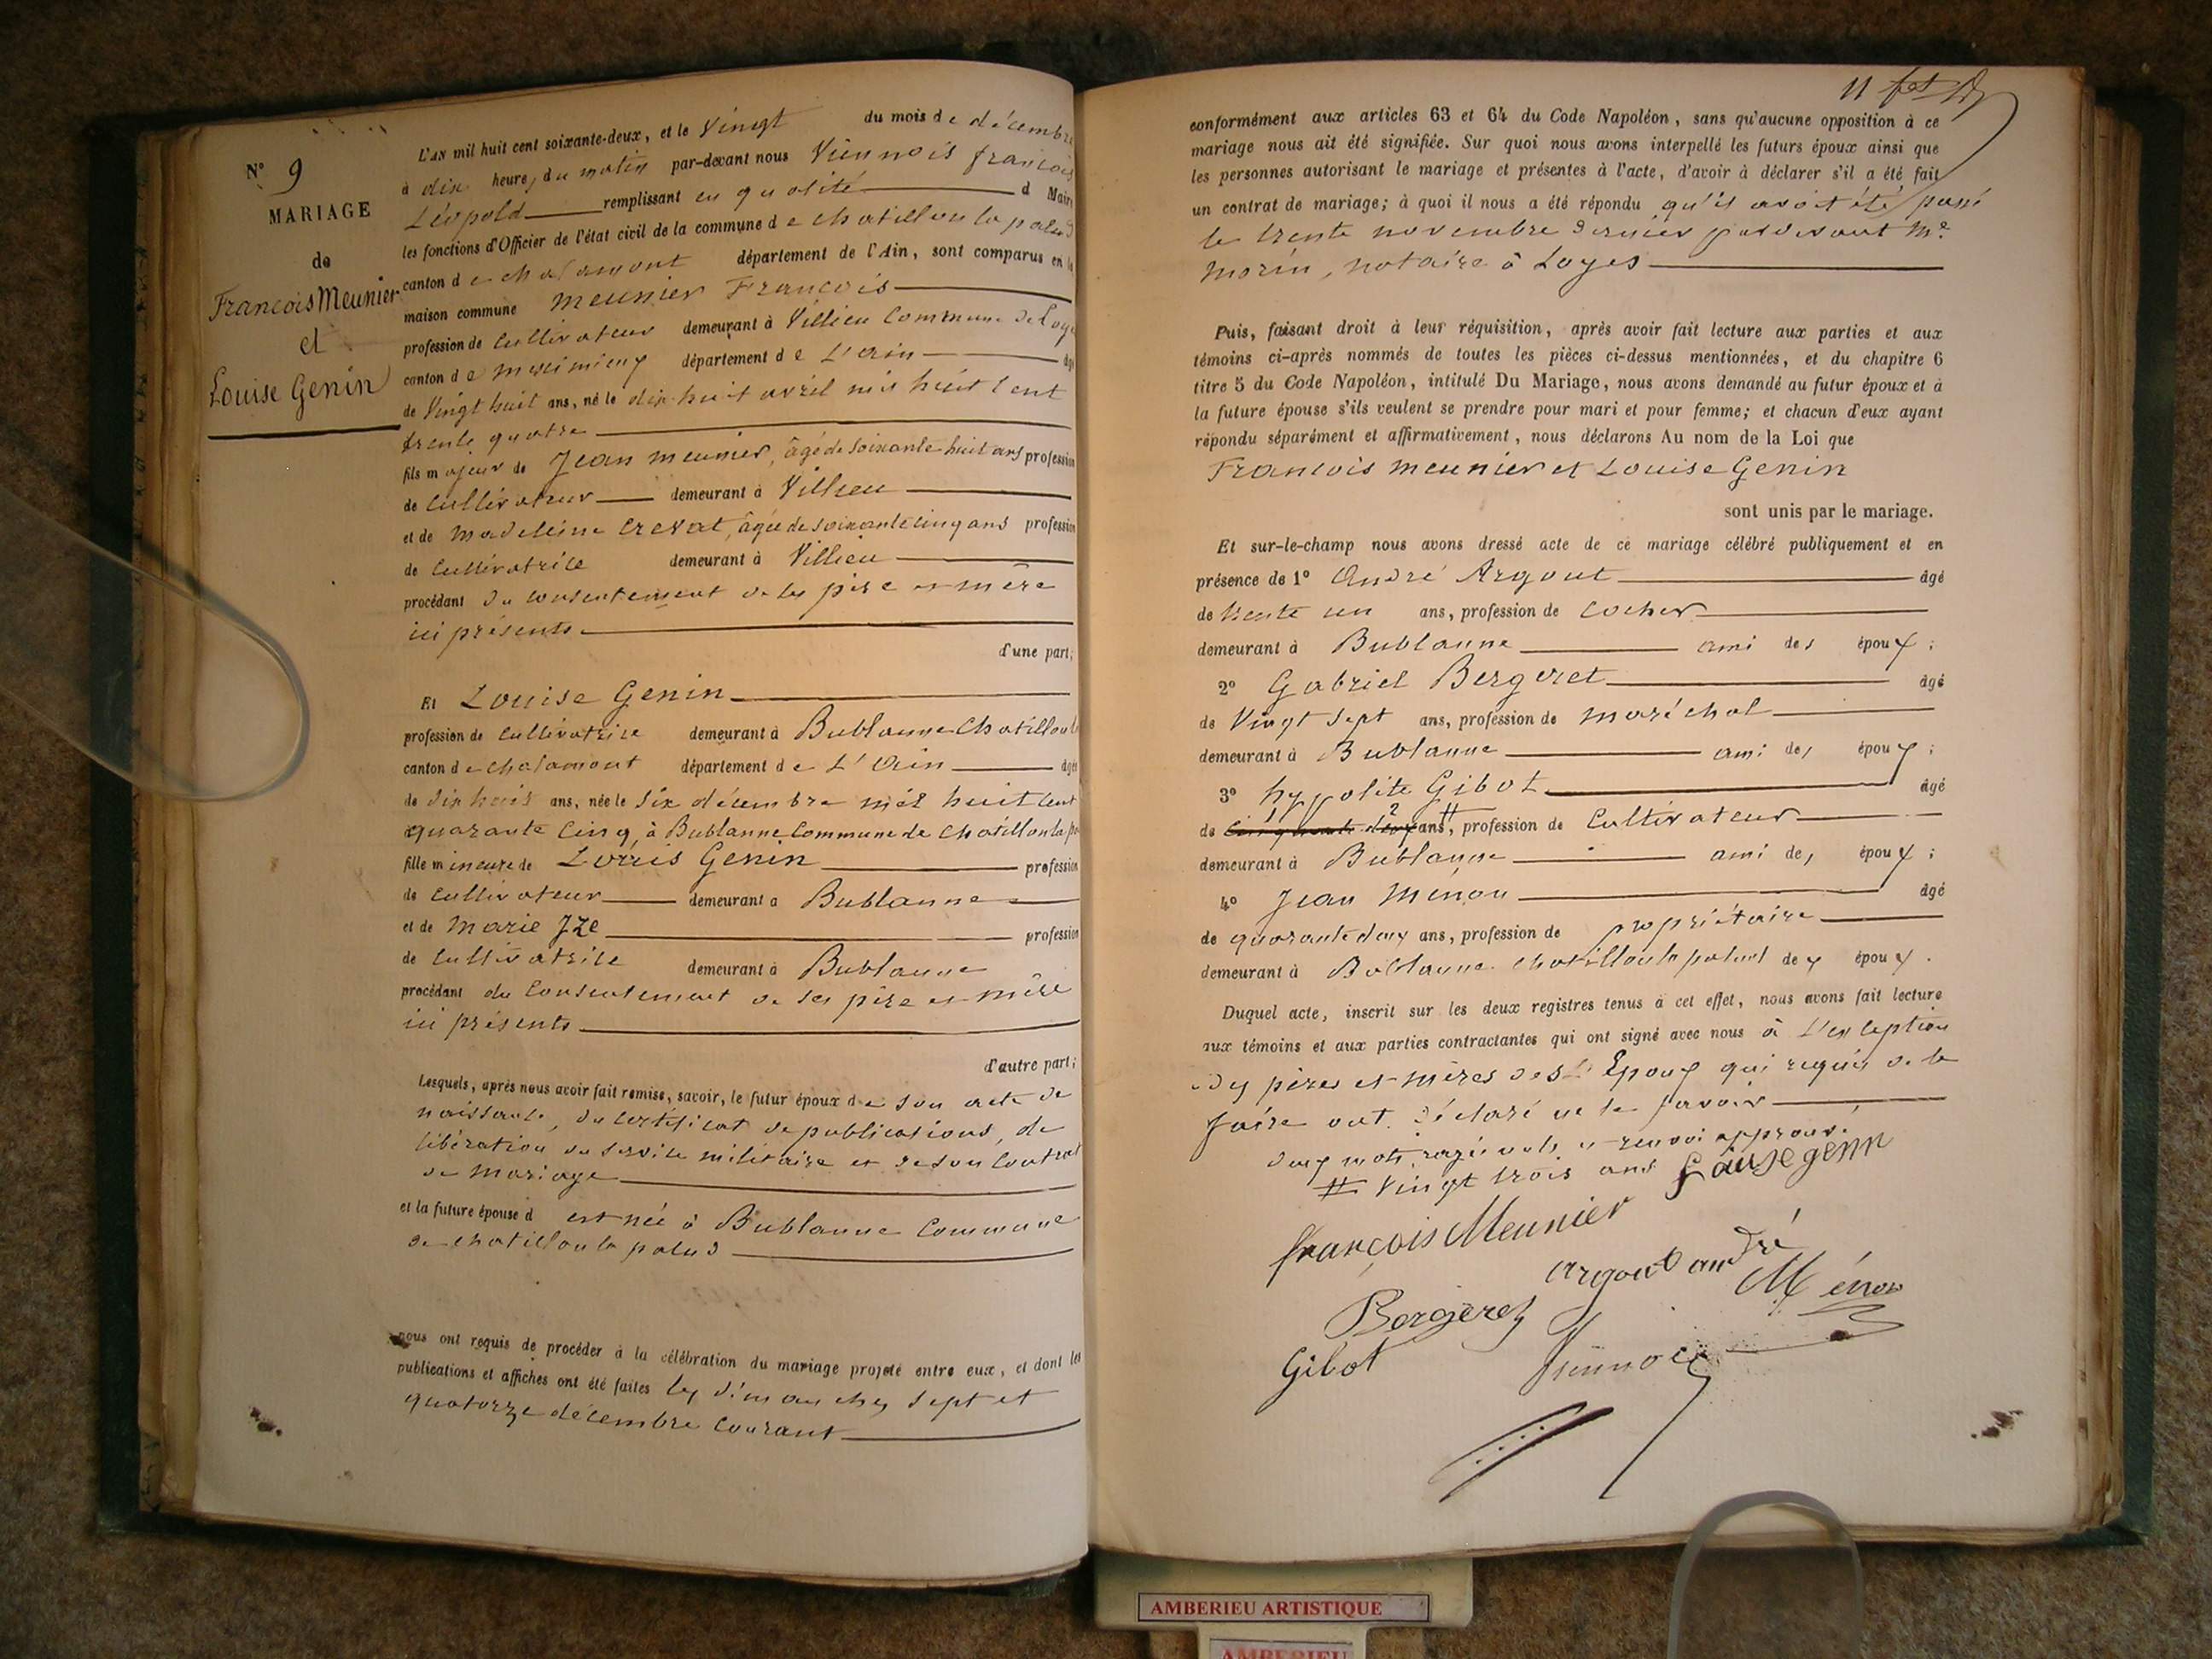 N° 9
MARIAGE
de
François Meunier
et
Louise Genin
L'AN mil huit cent soixante-deux, et le Vingt du mois de décembre
à dix heures du matin par-devant nous Viennois françois
Léopold remplissant en qualité d Maire
les fonctions d'Officier de l'état civil de la commune de chatillon la palud
canton de chalamont département de l'Ain, sont comparus en la
maison commune Meunier François
profession de Cultivateur demeurant à Villieu Commune de Loyes
canton de meximieux département de L'ain âgé
de Vingt huit ans, né le dix-huit avril mil huit cent
trente quatre
fils majeur de Jean meunier, âgé de soixante huit ans profession
de Cultivateur demeurant à Villieu
et de Madeleine Crevat, âgée de soixante cinq ans profession
de Cultivatrice demeurant à Villieu
procédant du consentement de ses père et mère
ici présents
d'une part;
Et Louise Genin
profession de Cultivatrice demeurant à Bublanne Chatillon la
canton de chalamont département de L'Ain âgée
de dix huit ans, née le six décembre mil huit cent
quarante cinq, à Bublanne Commune de Chatillon la pa
fille mineure de Louis Genin profession
de Cultivateur demeurant a Bublanne
et de Marie Jze profession
de Cultivatrice demeurant à Bublanne
procédant du Consentement de ses père et mère
ici présents
d'autre part;
Lesquels, après nous avoir fait remise, savoir, le futur époux de son acte de
naissance, du certificat de publications, de
libération du service militaire et de son Contrat
de mariage
et la future épouse d est née à Bublanne Commune
de chatillon la palud
nous ont requis de procéder à la célébration du mariage projeté entre eux, et dont les
publications et affiches ont été faites les dimanches sept et
quatorze décembre Courant
11
conformément aux articles 63 et 64 du Code Napoléon, sans qu'aucune opposition à ce
mariage nous ait été signifiée. Sur quoi nous avons interpellé les futurs époux ainsi que
les personnes autorisant le mariage et présentes à l'acte, d'avoir à déclarer s'il a été fait
un contrat de mariage; à quoi il nous a été répondu qu'il avait été passé
le trente novembre dernier pardevant Me
Morin, notaire à Loyes
Puis, faisant droit à leur réquisition, après avoir fait lecture aux parties et aux
témoins ci-après nommés de toutes les pièces ci-dessus mentionnées, et du chapitre 6
titre 5 du Code Napoléon, intitulé Du Mariage, nous avons demandé au futur époux et à
la future épouse s'ils veulent se prendre pour mari et pour femme; et chacun d'eux ayant
répondu séparément et affirmativement, nous déclarons Au nom de la Loi que
François Meunier et Louise Genin
sont unis par le mariage.
Et sur-le-champ nous avons dressé acte de ce mariage célébré publiquement et en
présence de 1° André Argout âgé
de trente un ans, profession de Cocher
demeurant à Bublanne ami des époux;
2° Gabriel Bergeret âgé
de Vingt sept ans, profession de maréchal
demeurant à Bublanne ami des époux;
3° hyppolite Gibot âgé
de cinquante deux ans #, profession de Cultivateur
demeurant à Bublanne ami des époux;
4° Jean Menou âgé
de quarante deux ans, profession de propriétaire
demeurant à Bublanne chatillon la palud des époux.
Duquel acte, inscrit sur les deux registres tenus à cet effet, nous avons fait lecture
aux témoins et aux parties contractantes qui ont signé avec nous à L'exception
des pères et mères des Epoux qui requis de le
faire ont déclaré ne le savoir
deux mots rayés nuls et renvoi approuvé
# Vingt trois ans Louise genin
françois Meunier
argout andré
Menou
Bergeret
Gibot
Viennois
AMBERIEU ARTISTIQUE
AMBERIEU